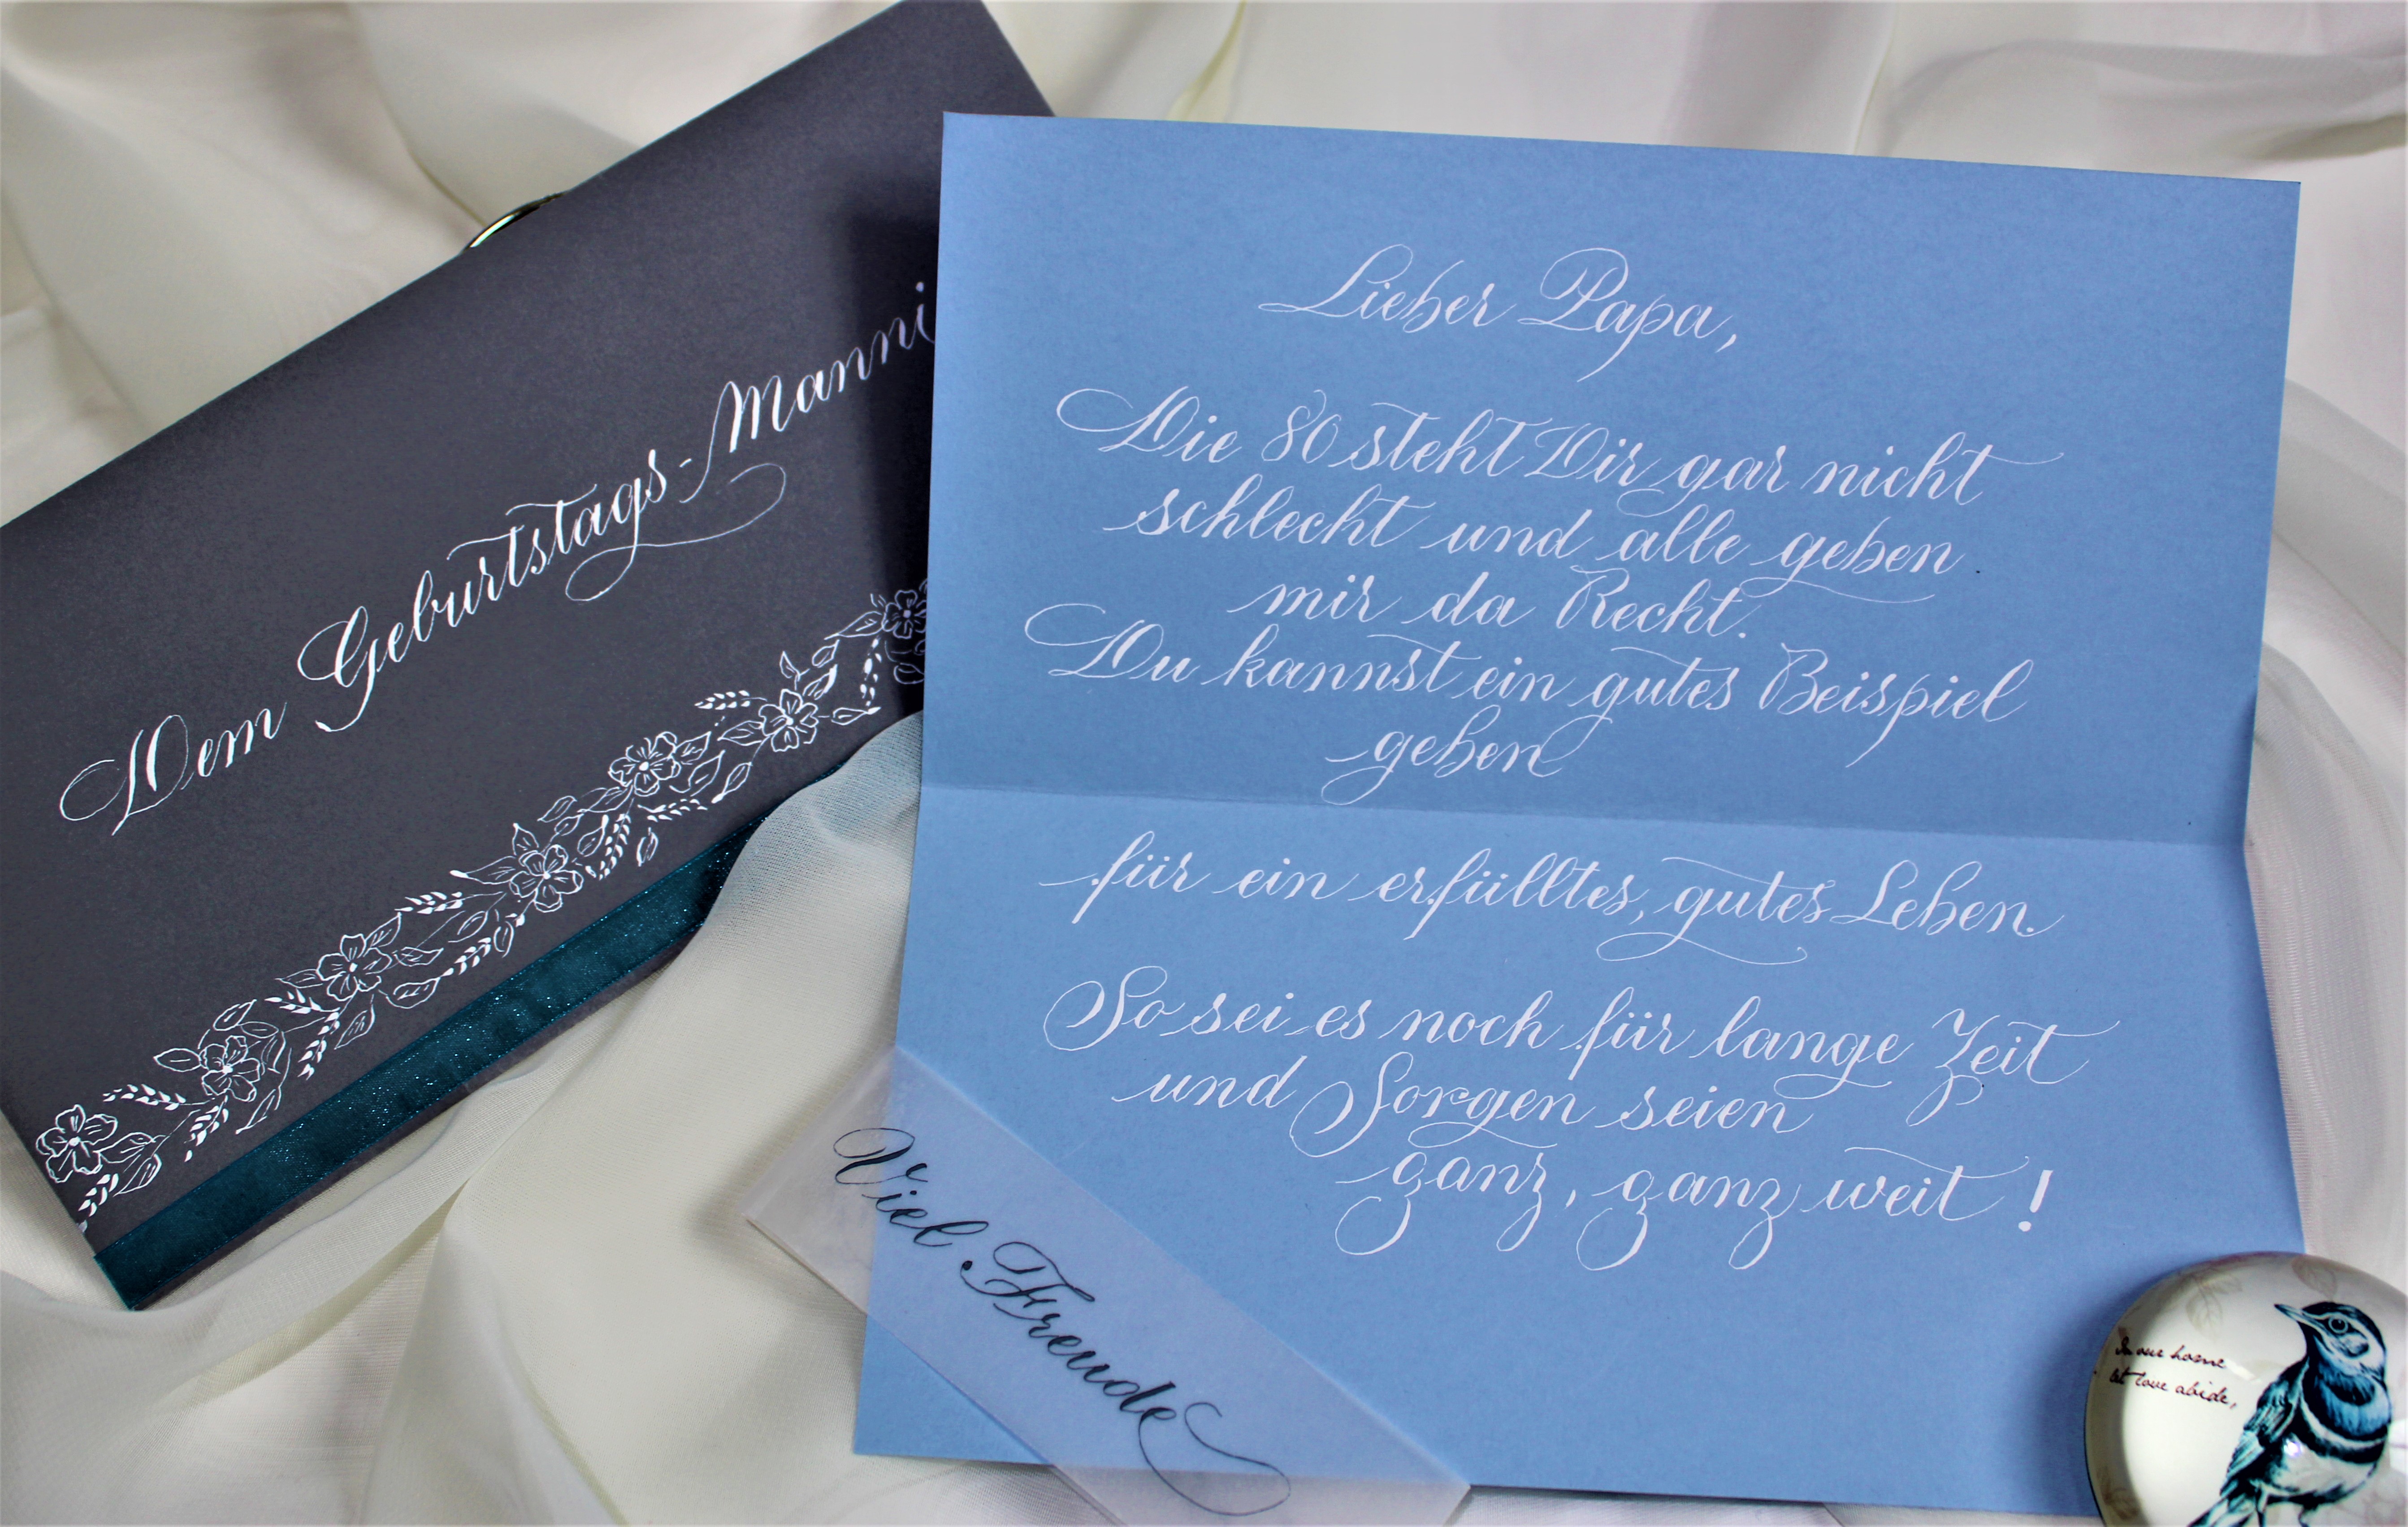 Dem Geburtstags-Manni
Lieber Papa,
Die 80 steht Dir gar nicht
schlecht und alle geben
mir da Recht.
Du kannst ein gutes Beispiel
geben
für ein erfülltes, gutes Leben.
So sei es noch für lange Zeit
und Sorgen seien
ganz, ganz weit!
Viel Freude
In our home
let love abide,